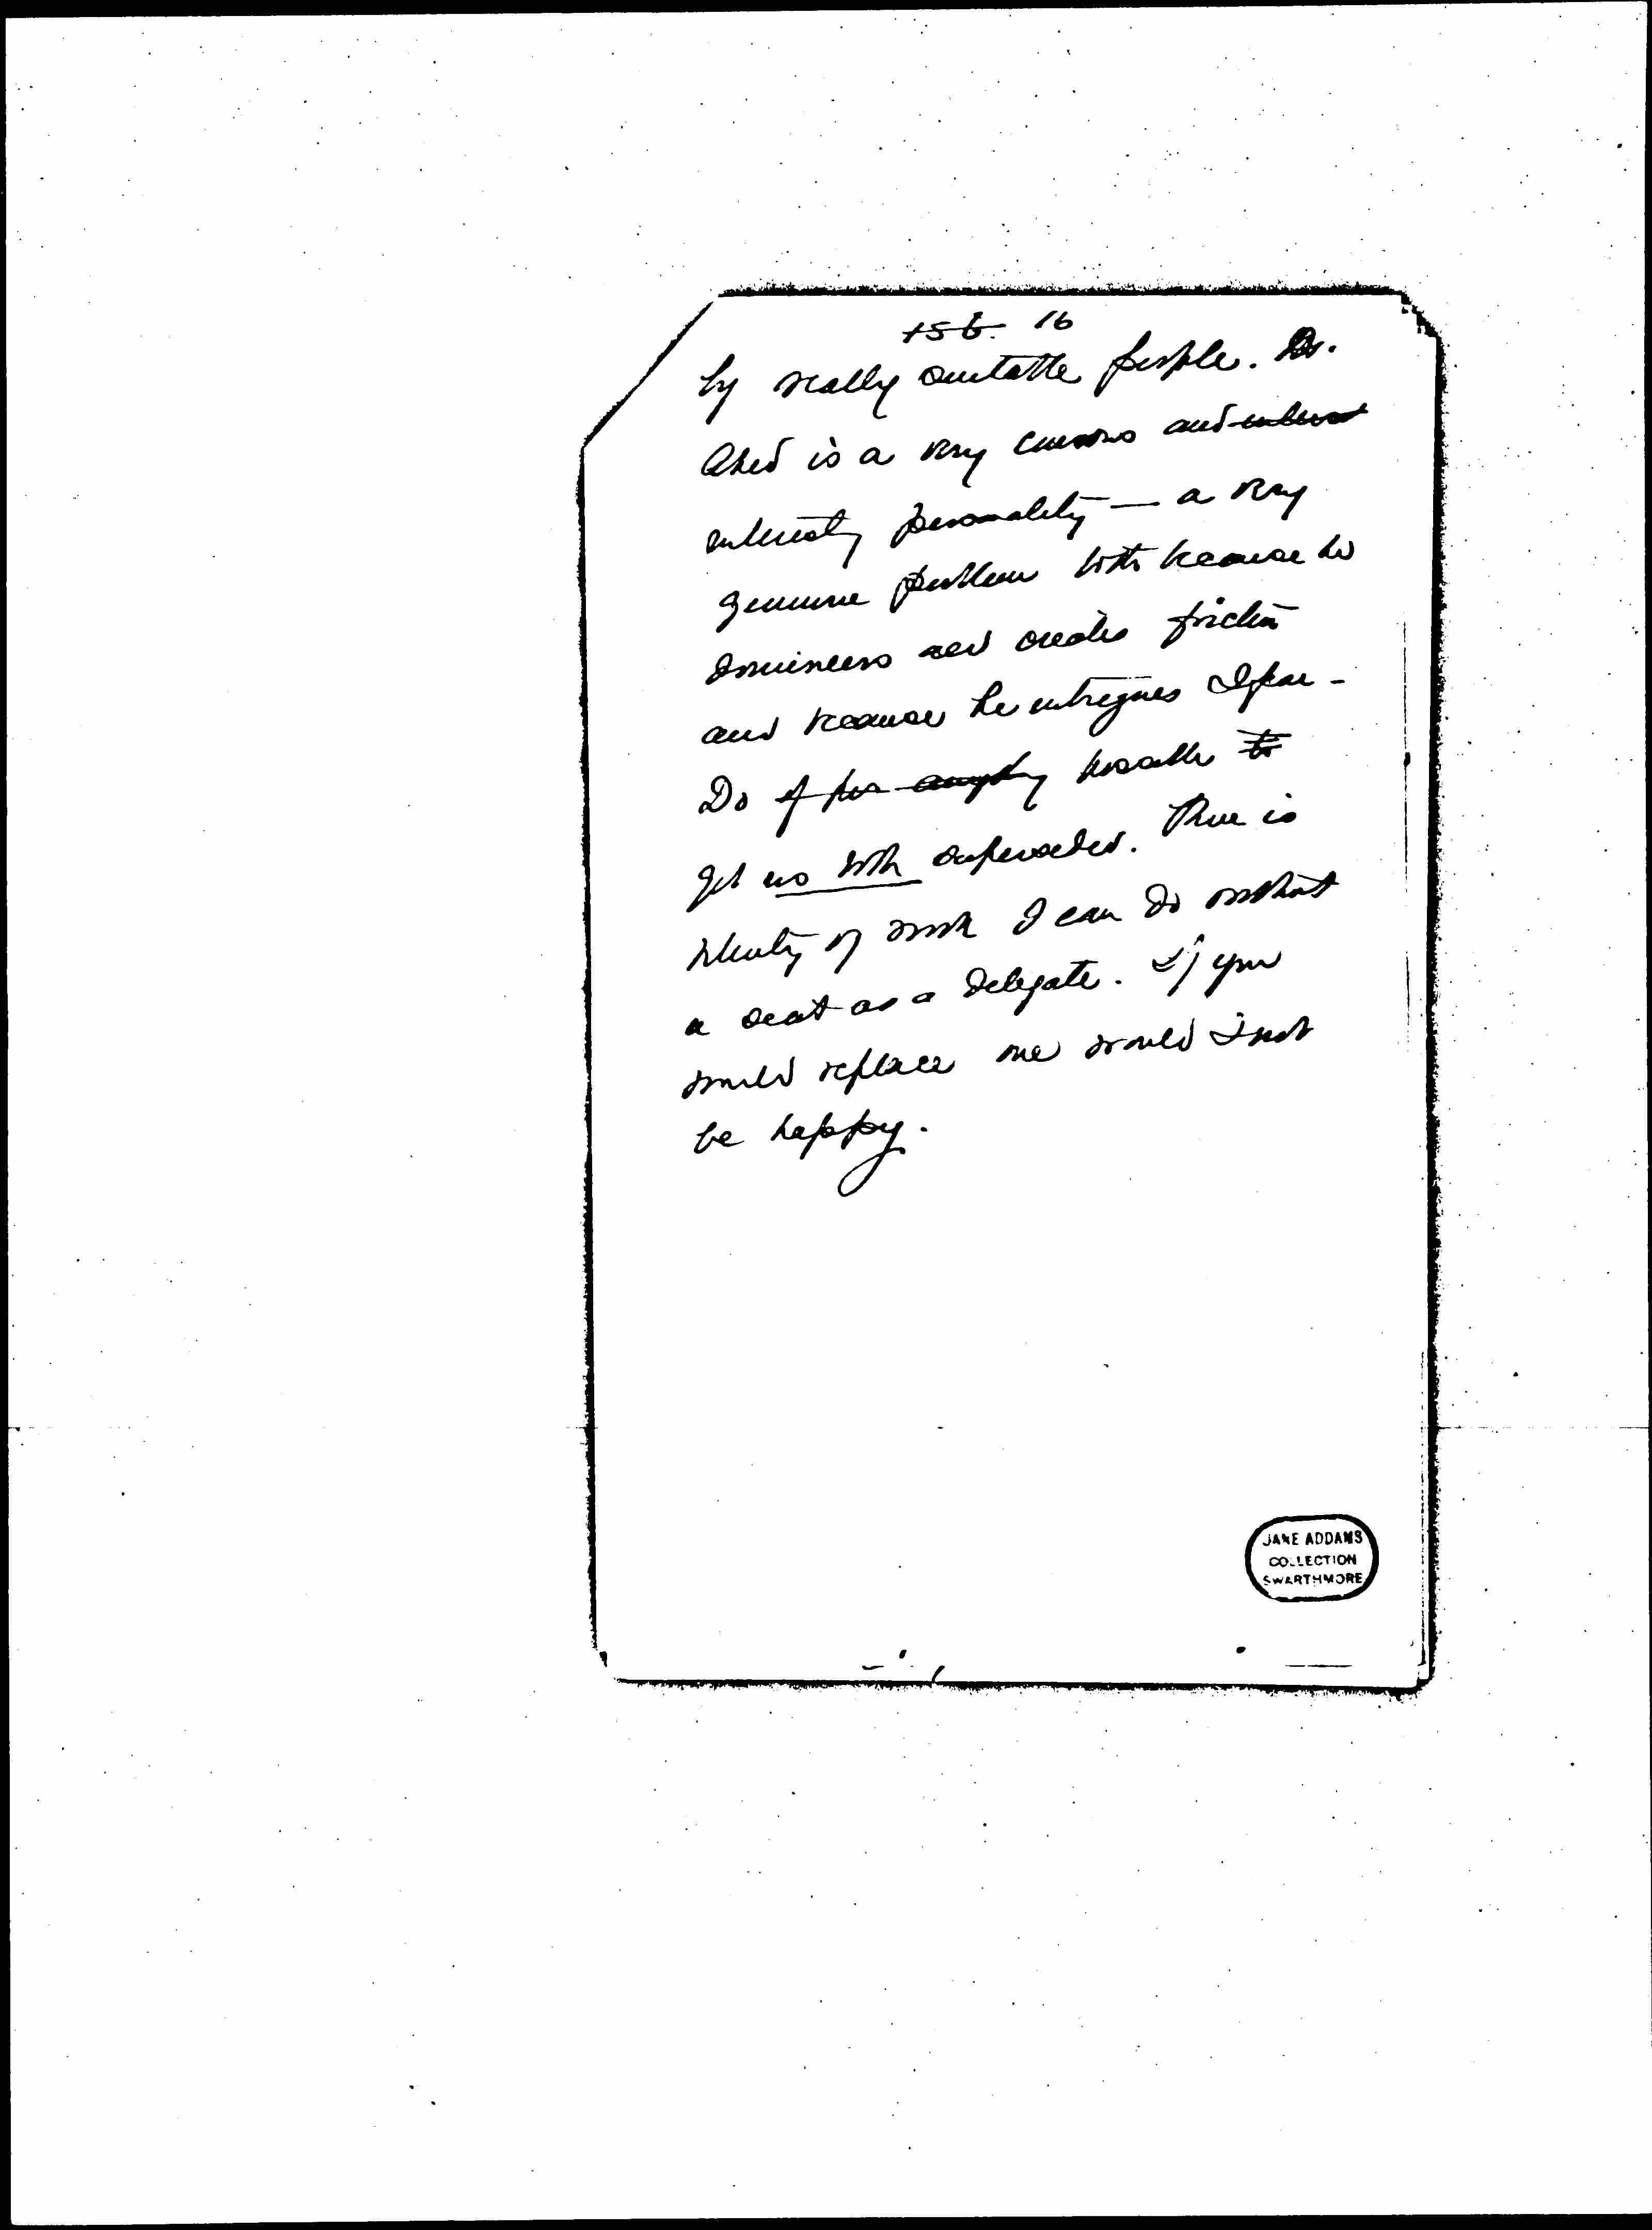 15 b. 16
by really suitable people. Dr.
Aked is a very curious and interest
interesting personality — a very
genuine problem both because he
domineers and creates friction
and because he intrigues I fear -
Do if possible to
get us both superseded. There is
plenty of work I can do without
a seat as a delegate. If you
would replace me would I not
be happy.
JANE ADDAMS
COLLECTION
SWARTHMORE